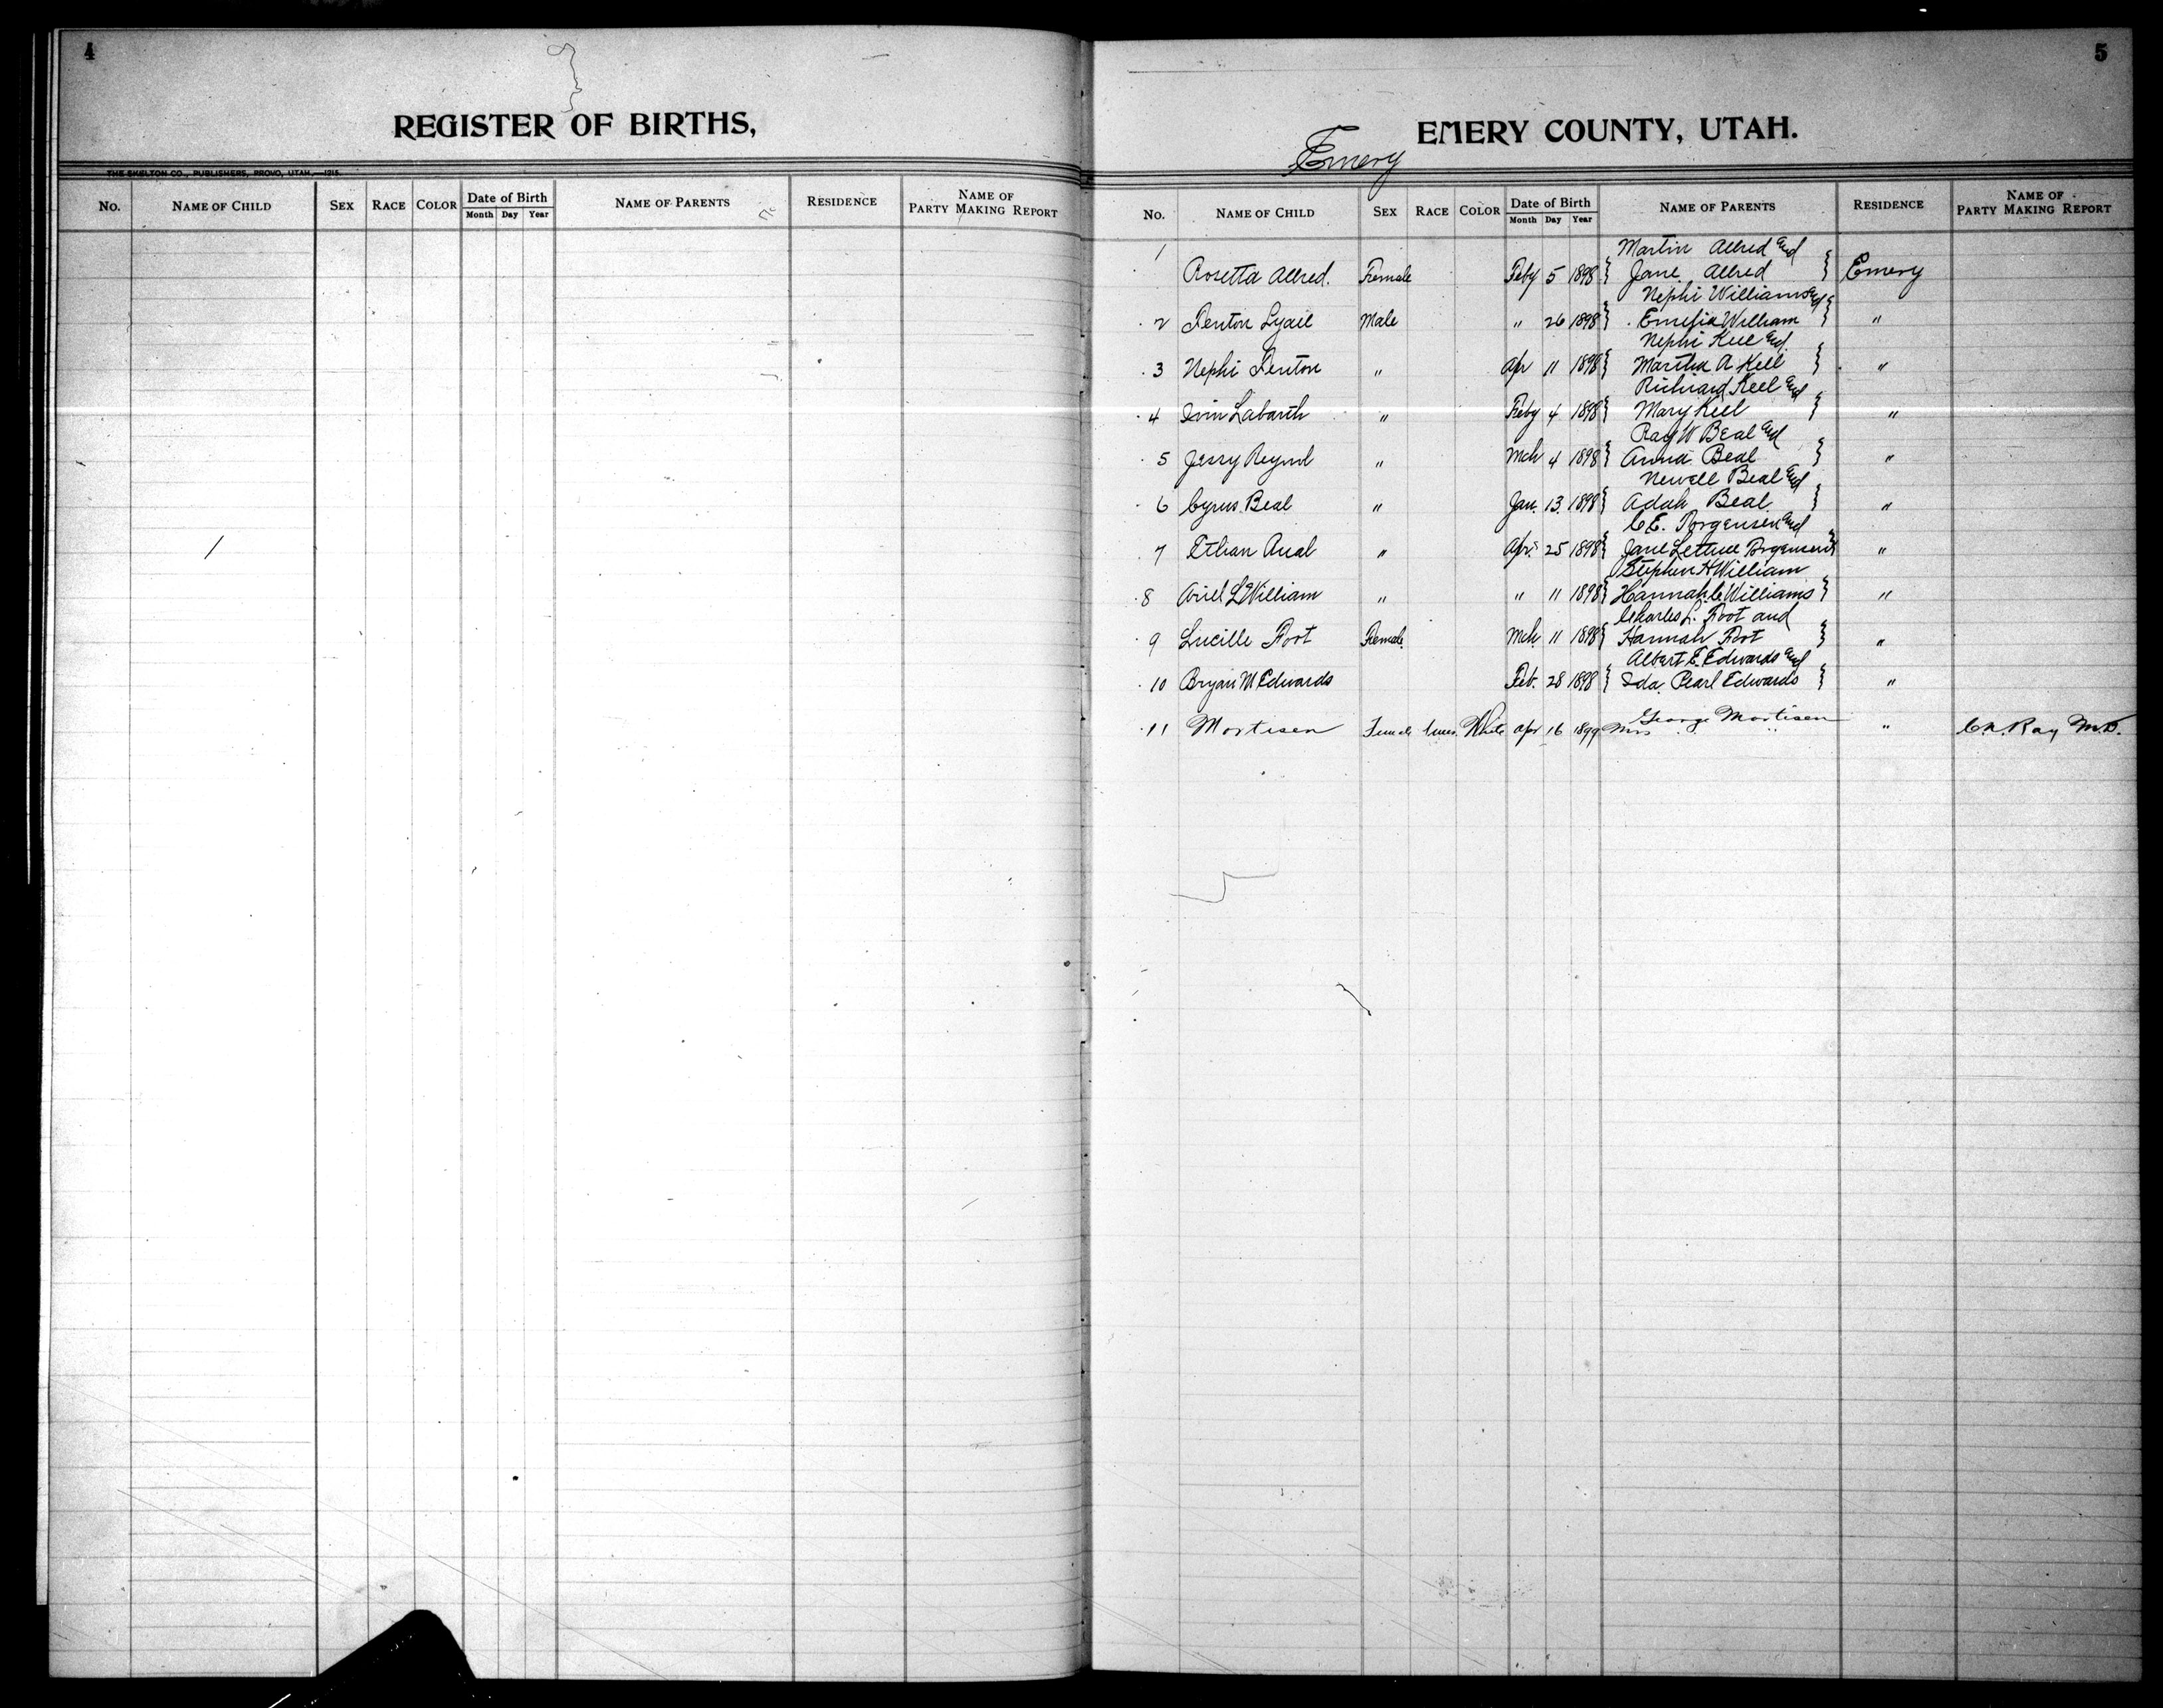 4
REGISTER OF BIRTHS,
THE SKELTON CO., PUBLISHERS, PROVO, UTAH.—1215
No. NAME OF CHILD SEX RACE COLOR Date of Birth Month Day Year NAME OF PARENTS RESIDENCE NAME OF PARTY MAKING REPORT
5
EMERY COUNTY, UTAH.
Emery
No. NAME OF CHILD SEX RACE COLOR Date of Birth Month Day Year NAME OF PARENTS RESIDENCE NAME OF PARTY MAKING REPORT
1 Martin Allred and
Rosetta Allred. Female Feby 5 1898 } Jane Allred } Emery
Nephi Williams and
2 Fenton Lyail Male " 26 1898 } William } "
Nephi Keel and
3 Nephi Fenton " Apr 11 1898 } Martha A Keel } "
Richard Keel and
4 Ivin Labarth " Feby 4 1898 } Mary Keel } "
Ray W Beal and
5 Jessy " Mch 4 1898 } Anna Beal } "
Newell Beal and
6 Cyrus Beal " Jan. 13. 1898 } Adah Beal } "
C E. Jorgensen and
7 " Apr. 25 1898 } Jane Jorgensen } "
Stephen H William
8 William " " 11 1898 } Hannah C Williams } "
Charles L. Foot and
9 Lucille Foot Female. Mch. 11 1898 { Hannah Foot } "
Albert E. Edwards and
10 Bryan M Edwards Feb. 28 1898 { Ida Pearl Edwards } "
George Mortisen
11 Mortisen Female White Apr 16 1899 Mrs " " " Ray M.D.